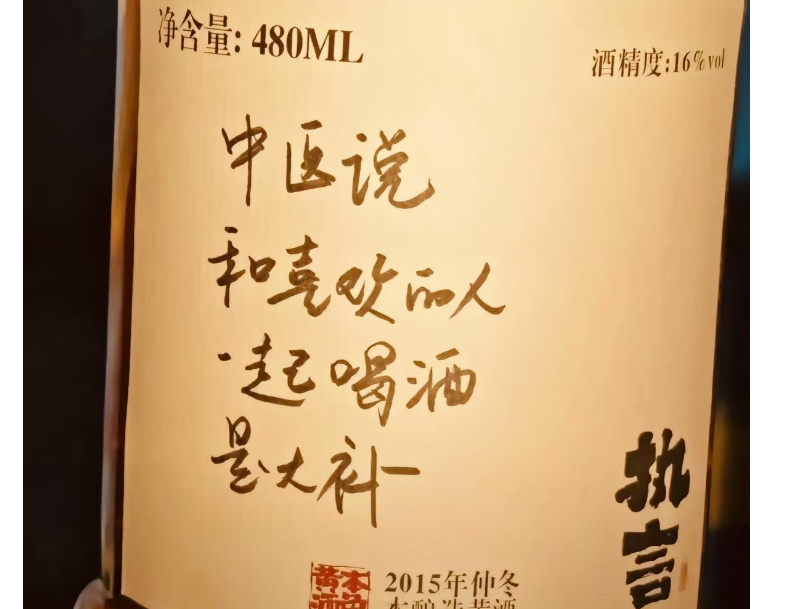 净含量: 480ML
酒精度:16%vol
中医说
和喜欢的人
一起喝酒
是大补
执言
2015年仲冬
本酿造黄酒